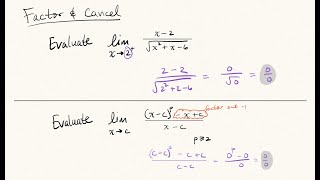 Factor & Cancel
Evaluate lim x→2⁺ x-2 / √(x²+x-6)
2-2 / √(2²+2-6) = 0/√0 = 0/0
Evaluate lim x→c (x-c)ᵖ - x + c / x-c
factor out -1
p≥2
(c-c)ᵖ - c + c / c-c = 0ᵖ-0 / 0 = 0/0